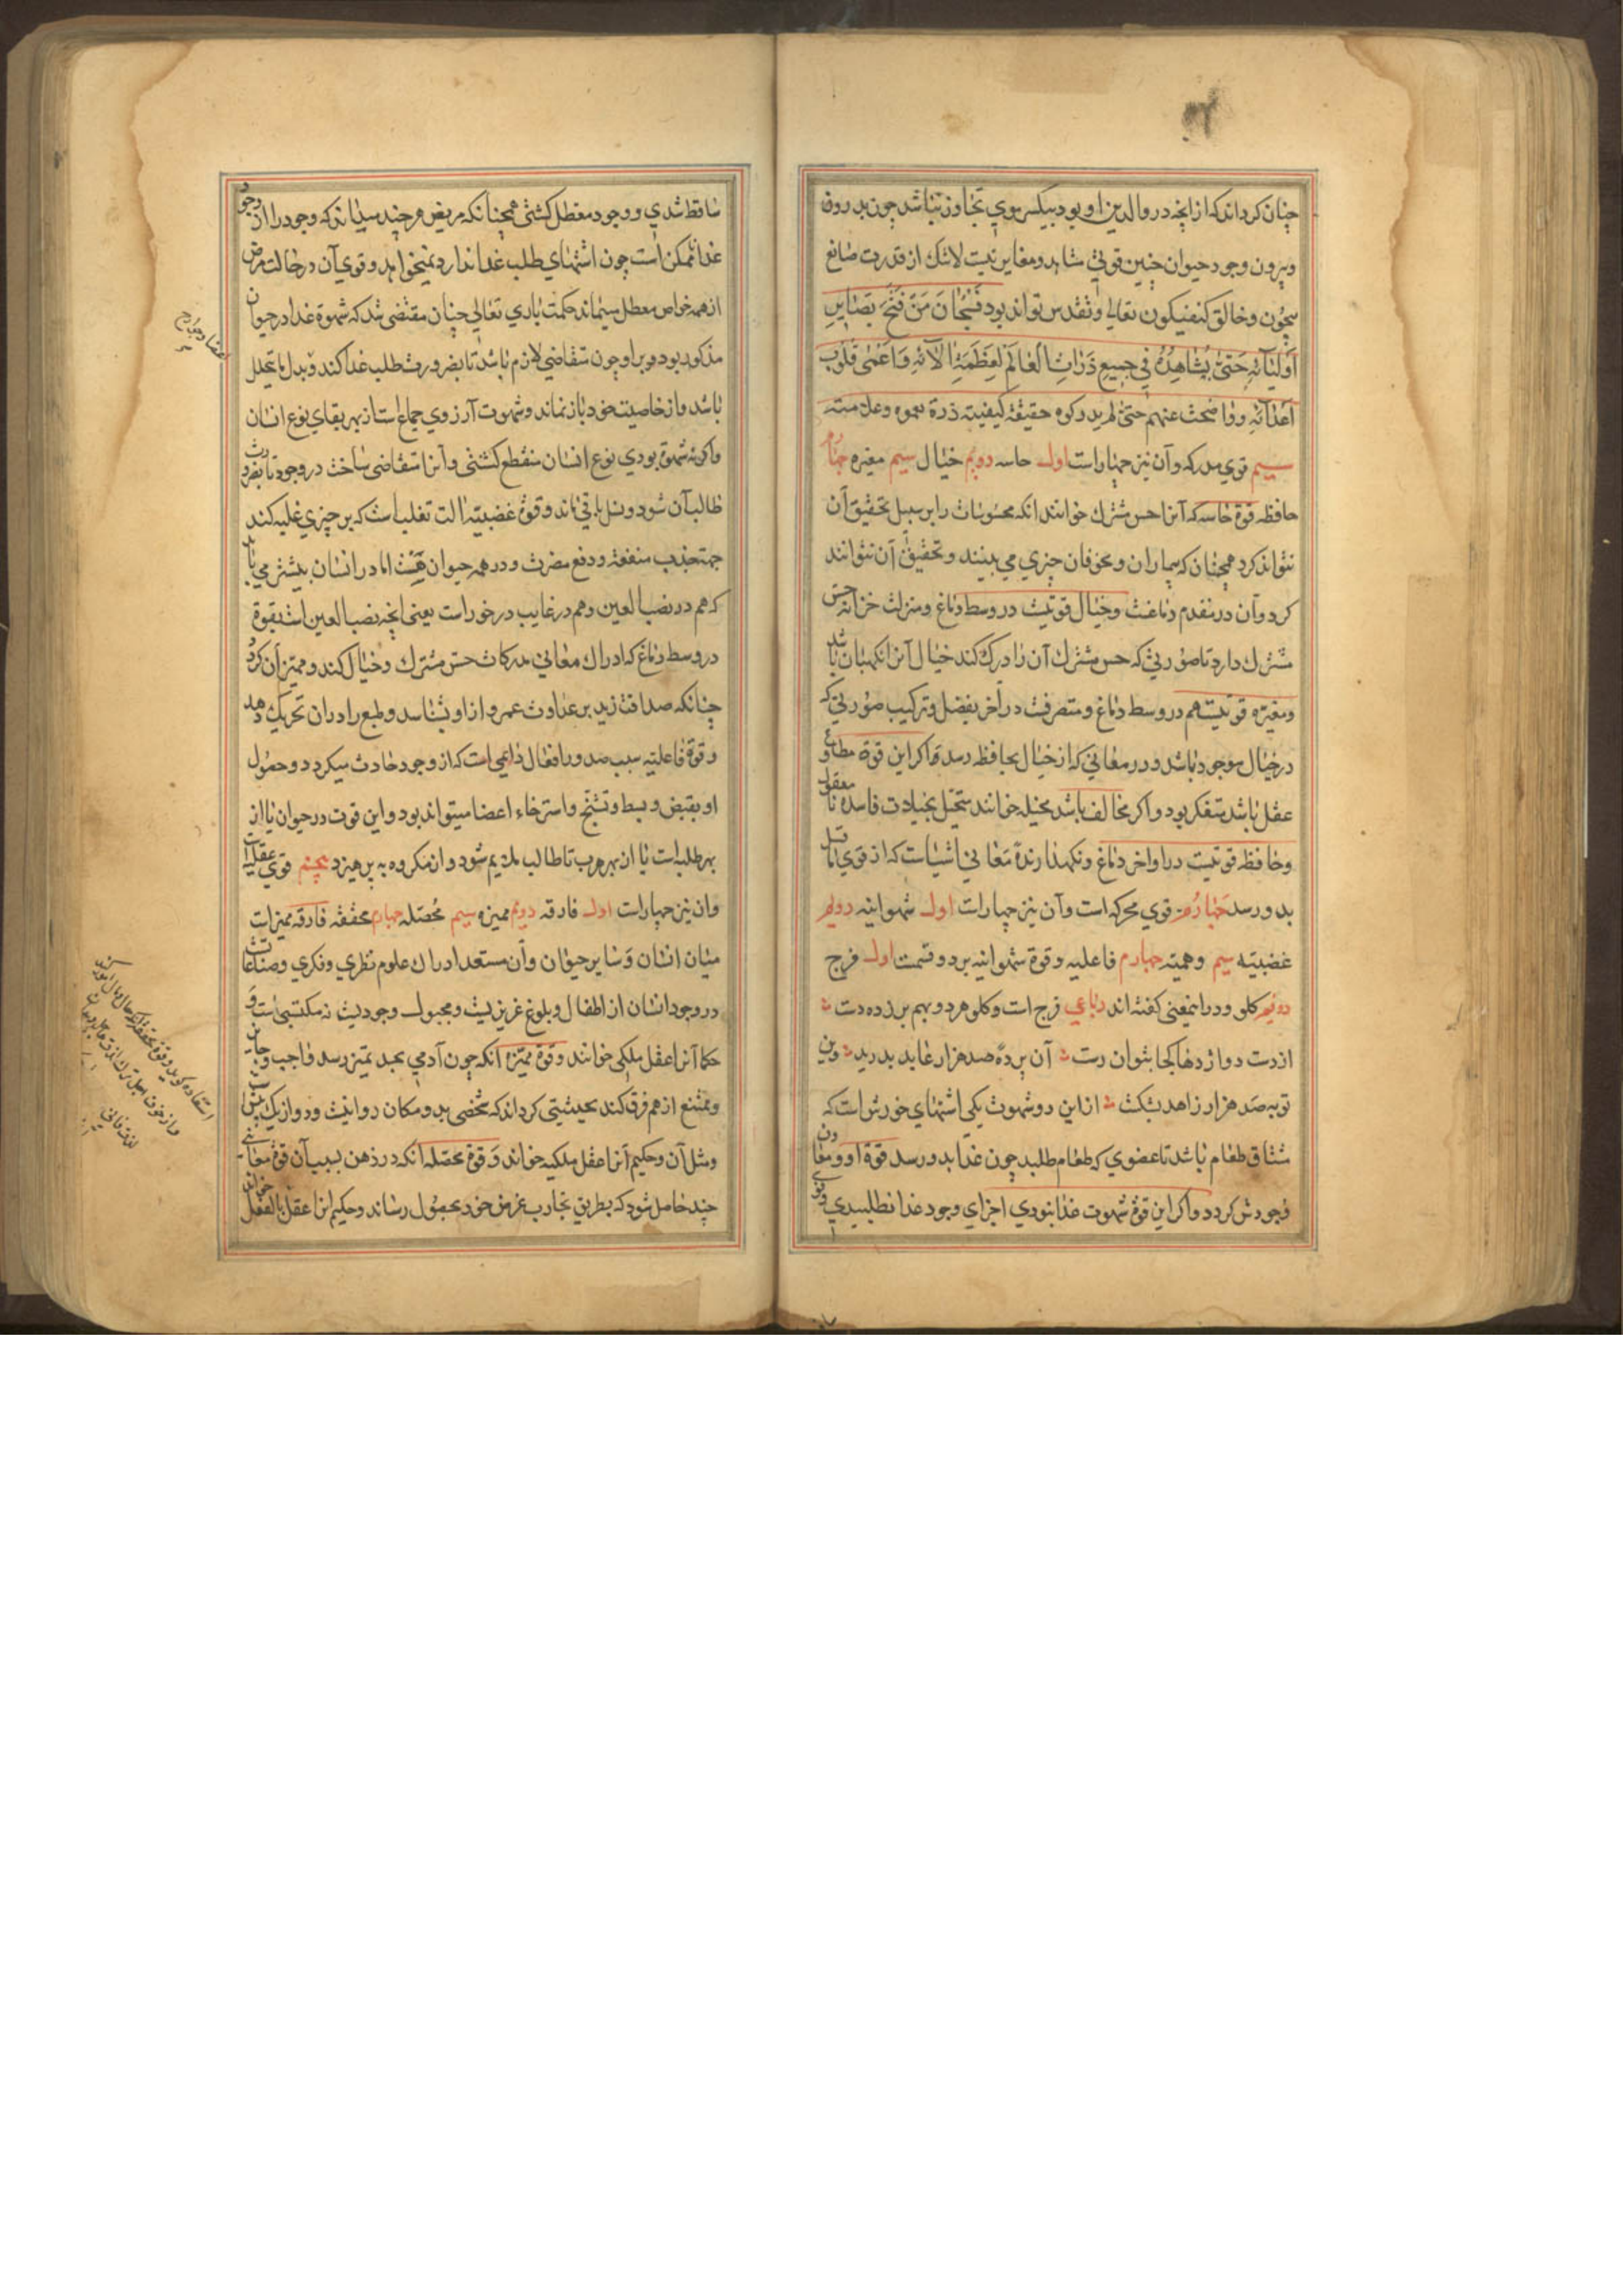 چنان کرداند که از انچه در والدین او بود بیکسر موی تجاوز نباشد چون بدرون
وبیرون وجود حیوان چنین قوتی شاهد ومغایر نیست لاشك از قدرت صانع
بیچون وخالق کنفیکون تعالی وتقدس تواند بود فسبحان من فتح بصایر
اولیآئه حتی یشاهده فی جمیع ذرات العالم لعظمة الآئه واعمی قلوب
اعدائه عنهم حتی لم یدرکوه حقیقة کیفیته ذرة
سیم قوی مدرکه وآن نیز چهاراست اول حاسه دویم خیال سیم مغیره چهارم
حافظه قوة حاسه که آنرا حس مشترك خوانند انکه محسوسات را بر سبیل تحقیق آن
نتواند کرد همچنان که بیماران ومخوفان چیزی می بینند وتحقیق آن نتوانند
کرد وآن در مقدم دماغست وخیال قوتیست در وسط دماغ ومنزلت خزانه حس
مشترك دارد تا صورتی که حس مشترك آن را درک کند خیال آنرا نکهبان باشد
ومغیره قوتیست هم در وسط دماغ ومتصرفست در آخر بفضل وترکیب صورتی که
در خیال موجود باشد ودر معانی که از خیال بحافظه رسد واکر این قوة مطاوع
عقل باشد متفکر بود واکر مخالف باشد مخیله خوانند تخیل بخیالات فاسده نامعقول
وحافظه قوتیست در اواخر دماغ ونکهدارندهٔ معانی اشیاست که از قوی ماقبل
بدو رسد چهارم قوی محرکه است وآن نیز چهاراست اول شهوانیه دویم
غضبیه سیم وهمیه چهارم فاعلیه وقوة شهوانیه بر دو قسمت اول فرج
دویم کلو ودر اینمعنی کفته اند رباعی فرج است وکلو هر دو بهم بر زده دست
از دست دو اژدها کجا بتوان رست آن پردهٔ صد هزار عابد بدرید وین
توبه صد هزار زاهد بشکست از این دو شهوت یکی اشتهای خورش است که
مشتاق طعام باشد تا عضوی که طعام طلبد چون غذا بدو رسد قوة او ومعاون
وجودش کردد واکر این قوة شهوت غذا نبودی اجزای وجود غذا نطلبیدی وقوی
ساقط شدی ووجود معطل کشتی همچنانکه مریض هر چند میداند که وجود را از وجود
غذا ناممکن است چون اشتهای طلب غذا ندارد نمیخواهد وقوی آن در حالت مرض
از همه خواص معطل میماند حکمت باری تعالی چنان مقتضی شد که شهوة غذا در حیوان
مذکور بود وبر او چون متقاضی لازم باشد تا بضرورت طلب غذا کند وبدل ما یتحلل
باشد واز خاصیت خود باز نماند وشهوت آرزوی جماع است از بهر بقای نوع انسان
واکر نه شهوة بودی نوع انسان منقطع کشتی وآنرا متقاضی ساخت در وجود تا بضرورت
طالب آن شود ونسل باقی ماند وقوة غضبیه الت تغلب است که بر چیزی غلبه کند
جهت جذب منفعة ودفع مضرت ودر همه حیوان هست اما در انسان بیشتر می باید
که هم در نصب العین وهم در غایب در خور است یعنی انچه نصب العین است بقوة
در وسط دماغ که ادراك معانی مدرکات حس مشترك وخیال کند وممیز آن کردد
چنانکه صداقت زید بر عداوت عمرو از او شناسد وطبع را در ان تحریك دهد
وقوة فاعلیه سبب صدور افعال داعی است که از وجود حادث میکردد وحصول
او بقبض وبسط وتشنج واسترخاء اعضا میتواند بود واین قوت در حیوان یا از
بهر طلب است یا از بهر هرب تا طالب ملایم شود واز مکروه به پرهیزد پنجم قوی عقل
وان نیز چهاراست اول فارقه دویم ممیزه سیم محصله چهارم محققه فارقه ممیزات
میان انسان وسایر حیوان وآن مستعد ادراك علوم نظری وفکری وصناعات
در وجود انسان از اطفال وبلوغ غریزیست ومجبول وجودیست نه مکتسبی است و
حکما آنرا عقل ملکی خوانند وقوة ممیزه آنکه چون آدمی بحد تمیز رسد واجب وجایز
وممتنع از هم فرق کند بحیثیتی کرداند که شخصی بدو مکان روا نیست ودو از یك بیش
ومثل آن وحکیم آنرا عقل ملکیه خواند وقوة محصله انکه در ذهن بسبب آن قوة معانی
چند حاصل شود که بطریق تجارب غرض خود بحصول رساند وحکیم انرا عقل بالفعل خواند
اعضا وجوارح